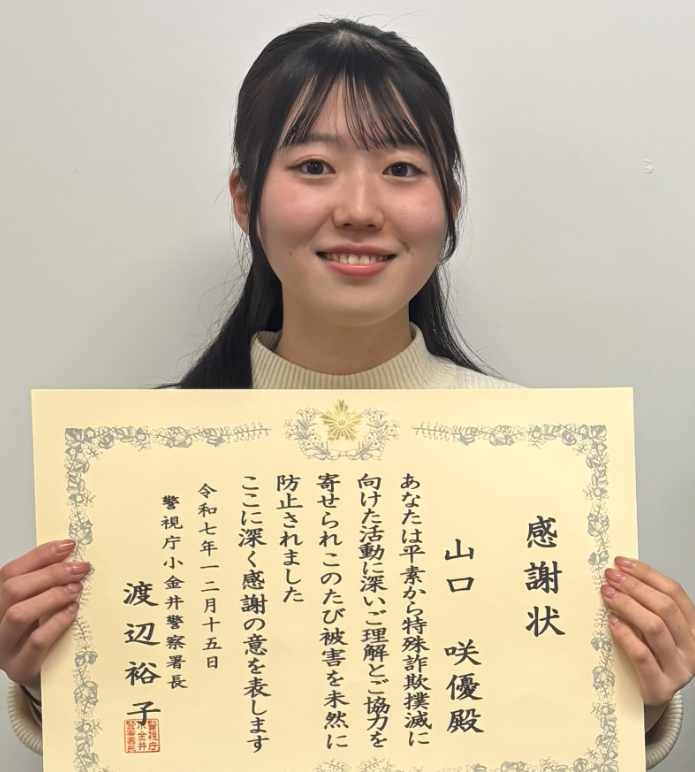 感謝状
山口 咲優殿
あなたは平素から特殊詐欺撲滅に
向けた活動に深いご理解とご協力を
寄せられこのたび被害を未然に
防止されました
ここに深く感謝の意を表します
令和七年一二月十五日
警視庁小金井警察署長
渡辺裕子
警視庁
小金井
警察署長